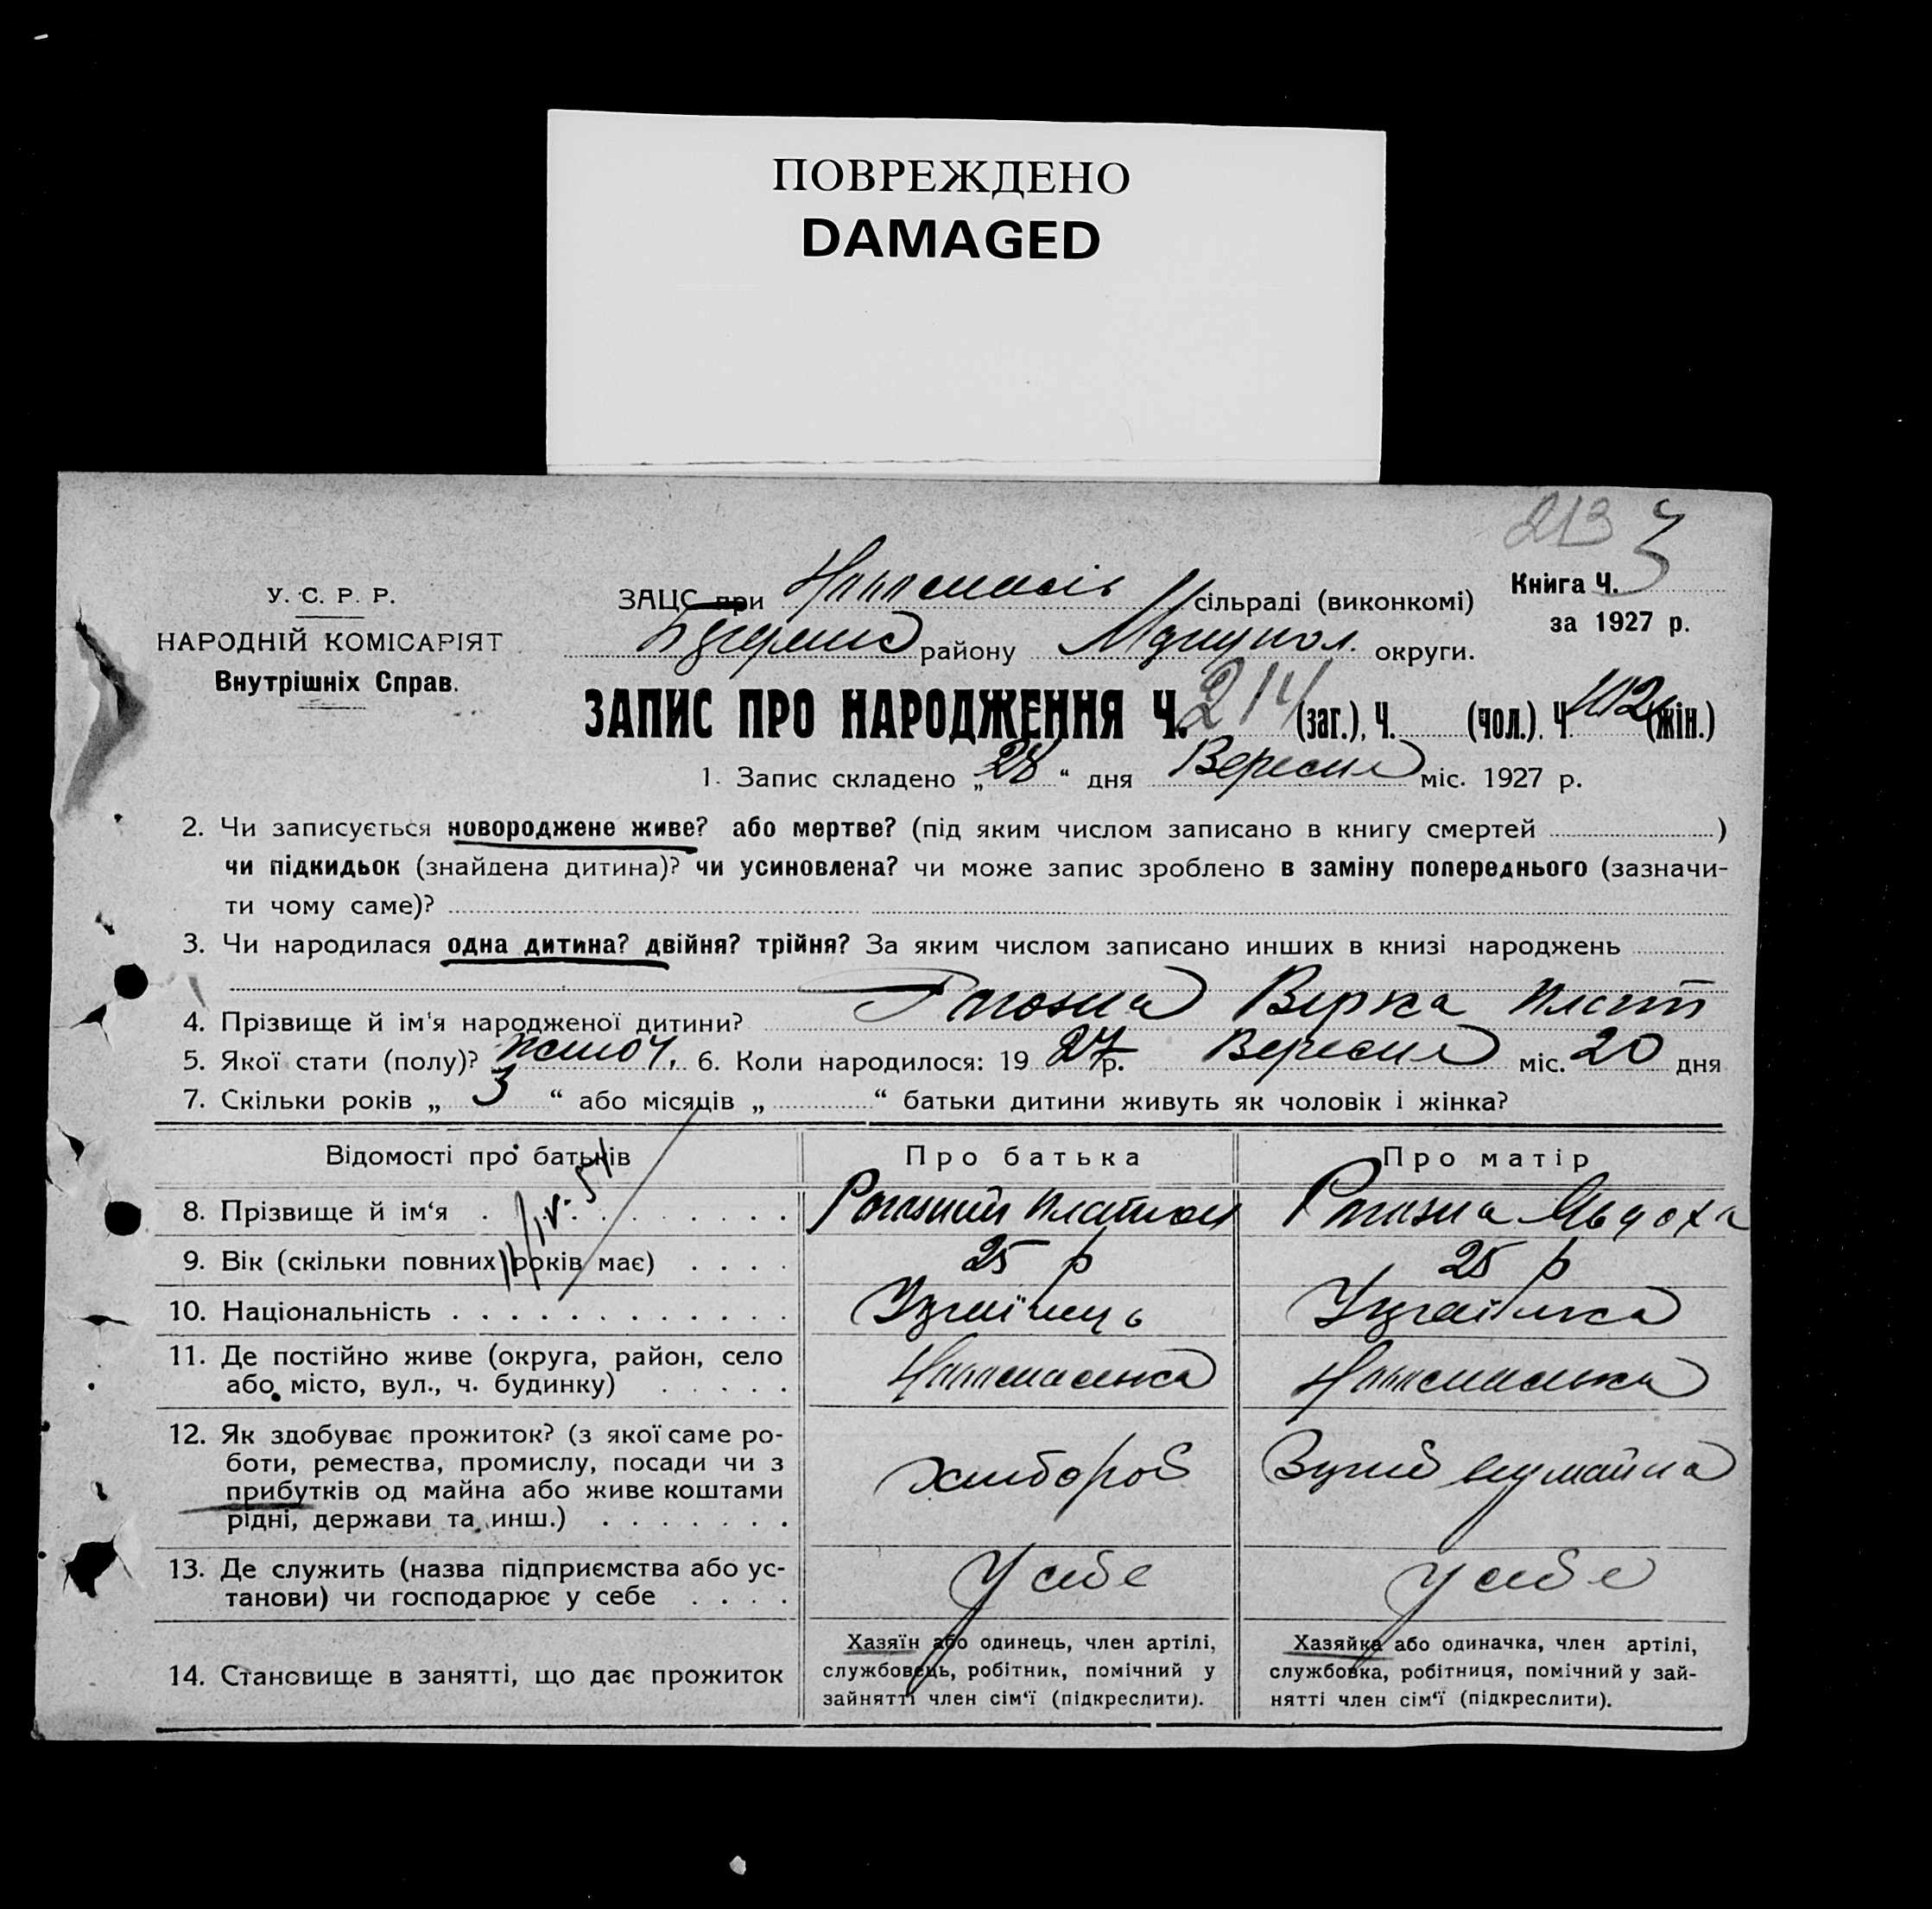 ПОВРЕЖДЕНО
DAMAGED
213 3
У. С. Р. Р.
НАРОДНІЙ КОМІСАРІЯТ
Внутрішніх Справ.
ЗАЦС при сільраді (виконкомі)
району Маріупол. округи.
Книга Ч.
за 1927 р.
ЗАПИС ПРО НАРОДЖЕННЯ Ч. 214 (заг.), Ч. (чол.). Ч. 102 (жін.)
1. Запис складено „28“ дня Вересня міс. 1927 р.
2. Чи записується новороджене живе? або мертве? (під яким числом записано в книгу смертей )
чи підкидьок (знайдена дитина)? чи усиновлена? чи може запис зроблено в заміну попереднього (зазначи-
ти чому саме)?
3. Чи народилася одна дитина? двійня? трійня? За яким числом записано инших в книзі народжень
4. Прізвище й ім'я народженої дитини? Рогозна Вірка Плат
5. Якої стати (полу)? жіноч. 6. Коли народилося: 1927 р. Вересня міс. 20 дня
7. Скільки років „ 3 “ або місяців „ “ батьки дитини живуть як чоловік і жінка?
Відомості про батьків Про батька Про матір
8. Прізвище й ім‘я Рогозний Платон Рогозна Явдоха
9. Вік (скільки повних років має) 25 р 25 р
10. Національність Українець Українка
11. Де постійно живе (округа, район, село
або місто, вул., ч. будинку)
12. Як здобуває прожиток? (з якої саме ро-
боти, ремества, промислу, посади чи з
прибутків од майна або живе коштами
рідні, держави та инш.) хлібороб
13. Де служить (назва підприємства або ус-
танови) чи господарює у себе У себе У себе
14. Становище в занятті, що дає прожиток
Хазяїн або одинець, член артілі,
службовець, робітник, помічний у
зайнятті член сім‘ї (підкреслити).
Хазяйка або одиначка, член артілі,
службовка, робітниця, помічний у зай-
нятті член сім‘ї (підкреслити).